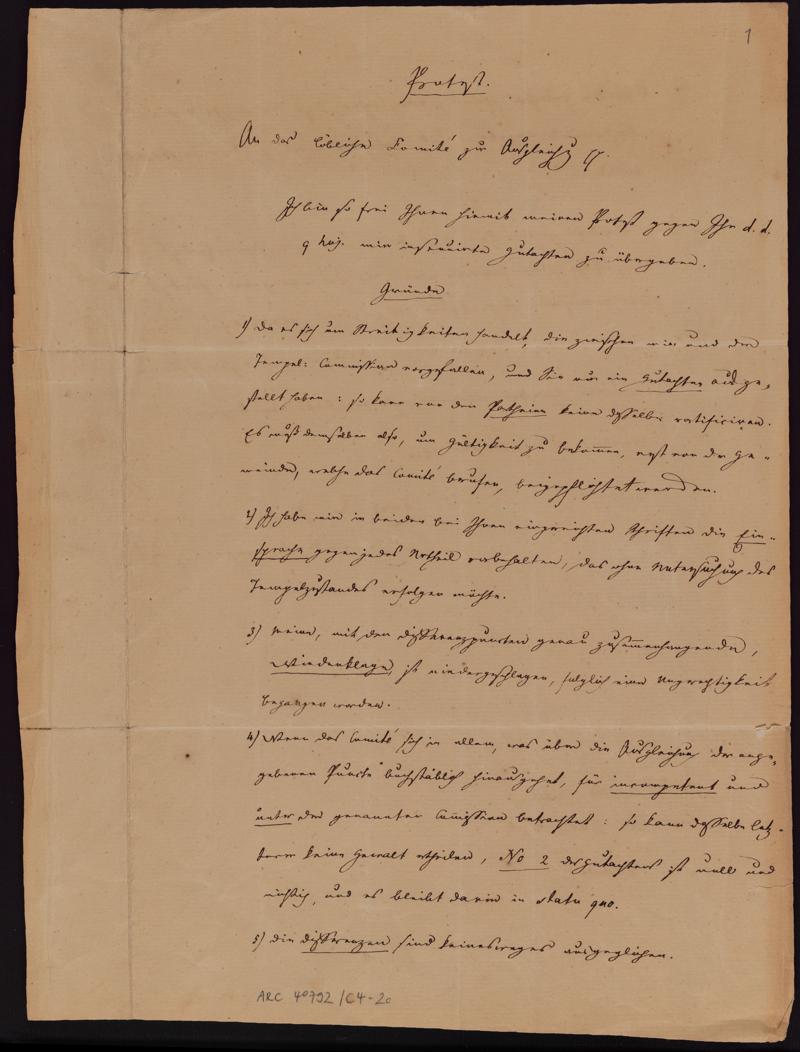 1
Protest.
An das löbliche Comité zur Ausgleichg
Ich bin so frei Ihnen hiemit meinen Protest gegen Ihr d. d.
9 huj. mir insinuirte Gutachten zu übergeben.
Gründe
1) Da es sich um Streitigkeiten handelt, die zwischen mir und der
Tempel: Commission vorgefallen, und Sie nur ein Gutachten ausge-
stellt haben : so kann von den Partheien keine dasselbe ratificiren.
Es muß demselben also, um Gültigkeit zu bekommen, erst von der Ge-
meinde, welche das Comité berufen, beigepflichtet werden.
2) Ich habe mir in beiden bei Ihnen eingereichten Schriften die Ein-
sprache gegen jedes Urtheil vorbehalten, das ohne Untersuchung des
Tempelzustandes erfolgen möchte.
3) Meine, mit den Differenzpuncten genau zusammenhangende,
Wiederklage ist niedergeschlagen, folglich eine Ungerechtigkeit
begangen worden.
4) Wenn das Comité sich in allem, was über die Ausgleichung der ange-
gebenen Puncte buchstäblich hinausgehet, für incompetent und
unter der genannten Commission betrachtet : so kann dasselbe letz-
terer keine Gewalt ertheilen, No 2 des Gutachtens ist null und
nichtig, und es bleibt darin in statu quo.
5) die Differenzen sind keineswegs ausgeglichen.
ARC 4o792 /C4-20